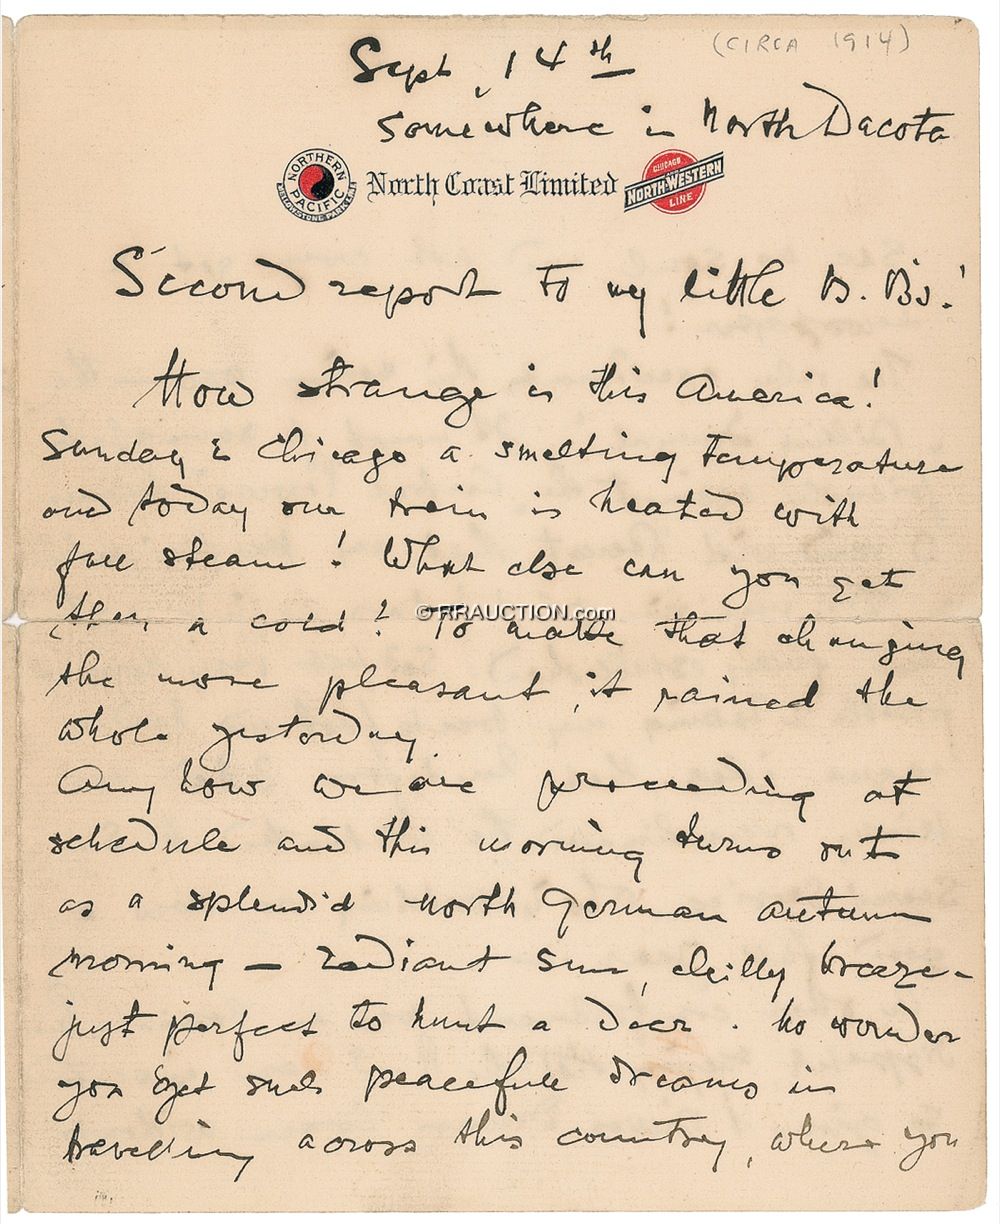 (CIRCA 1914)
Sept, 14th
somewhere in North Dacota
NORTHERN PACIFIC YELLOWSTONE PARK LINE
North Coast Limited
CHICAGO NORTH-WESTERN LINE
Second report to my little B. Bs.!
How strange is this America!
Sunday & Chicago a smelting temperature
and today our train is heated with
full steam! What else can you get
then a cold? To make that changing
© RRAUCTION.com
the more pleasant, it rained the
whole yesterday.
Anyhow we are proceeding at
schedule and this morning turns out
as a splendid north German autumn
morning — radiant sun, chilly breeze -
just perfect to hunt a deer. No wonder
you get such peacefull dreams in
travelling across this country, where you